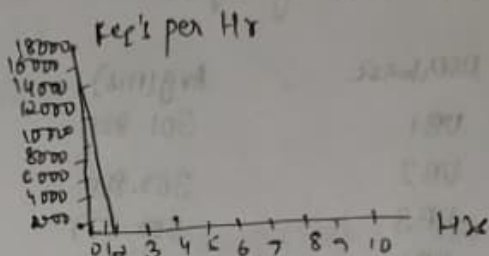 Req's per Hr
18000
16000
14000
12000
10000
8000
6000
4000
2000
0 1 2 3 4 5 6 7 8 9 10 Hrs